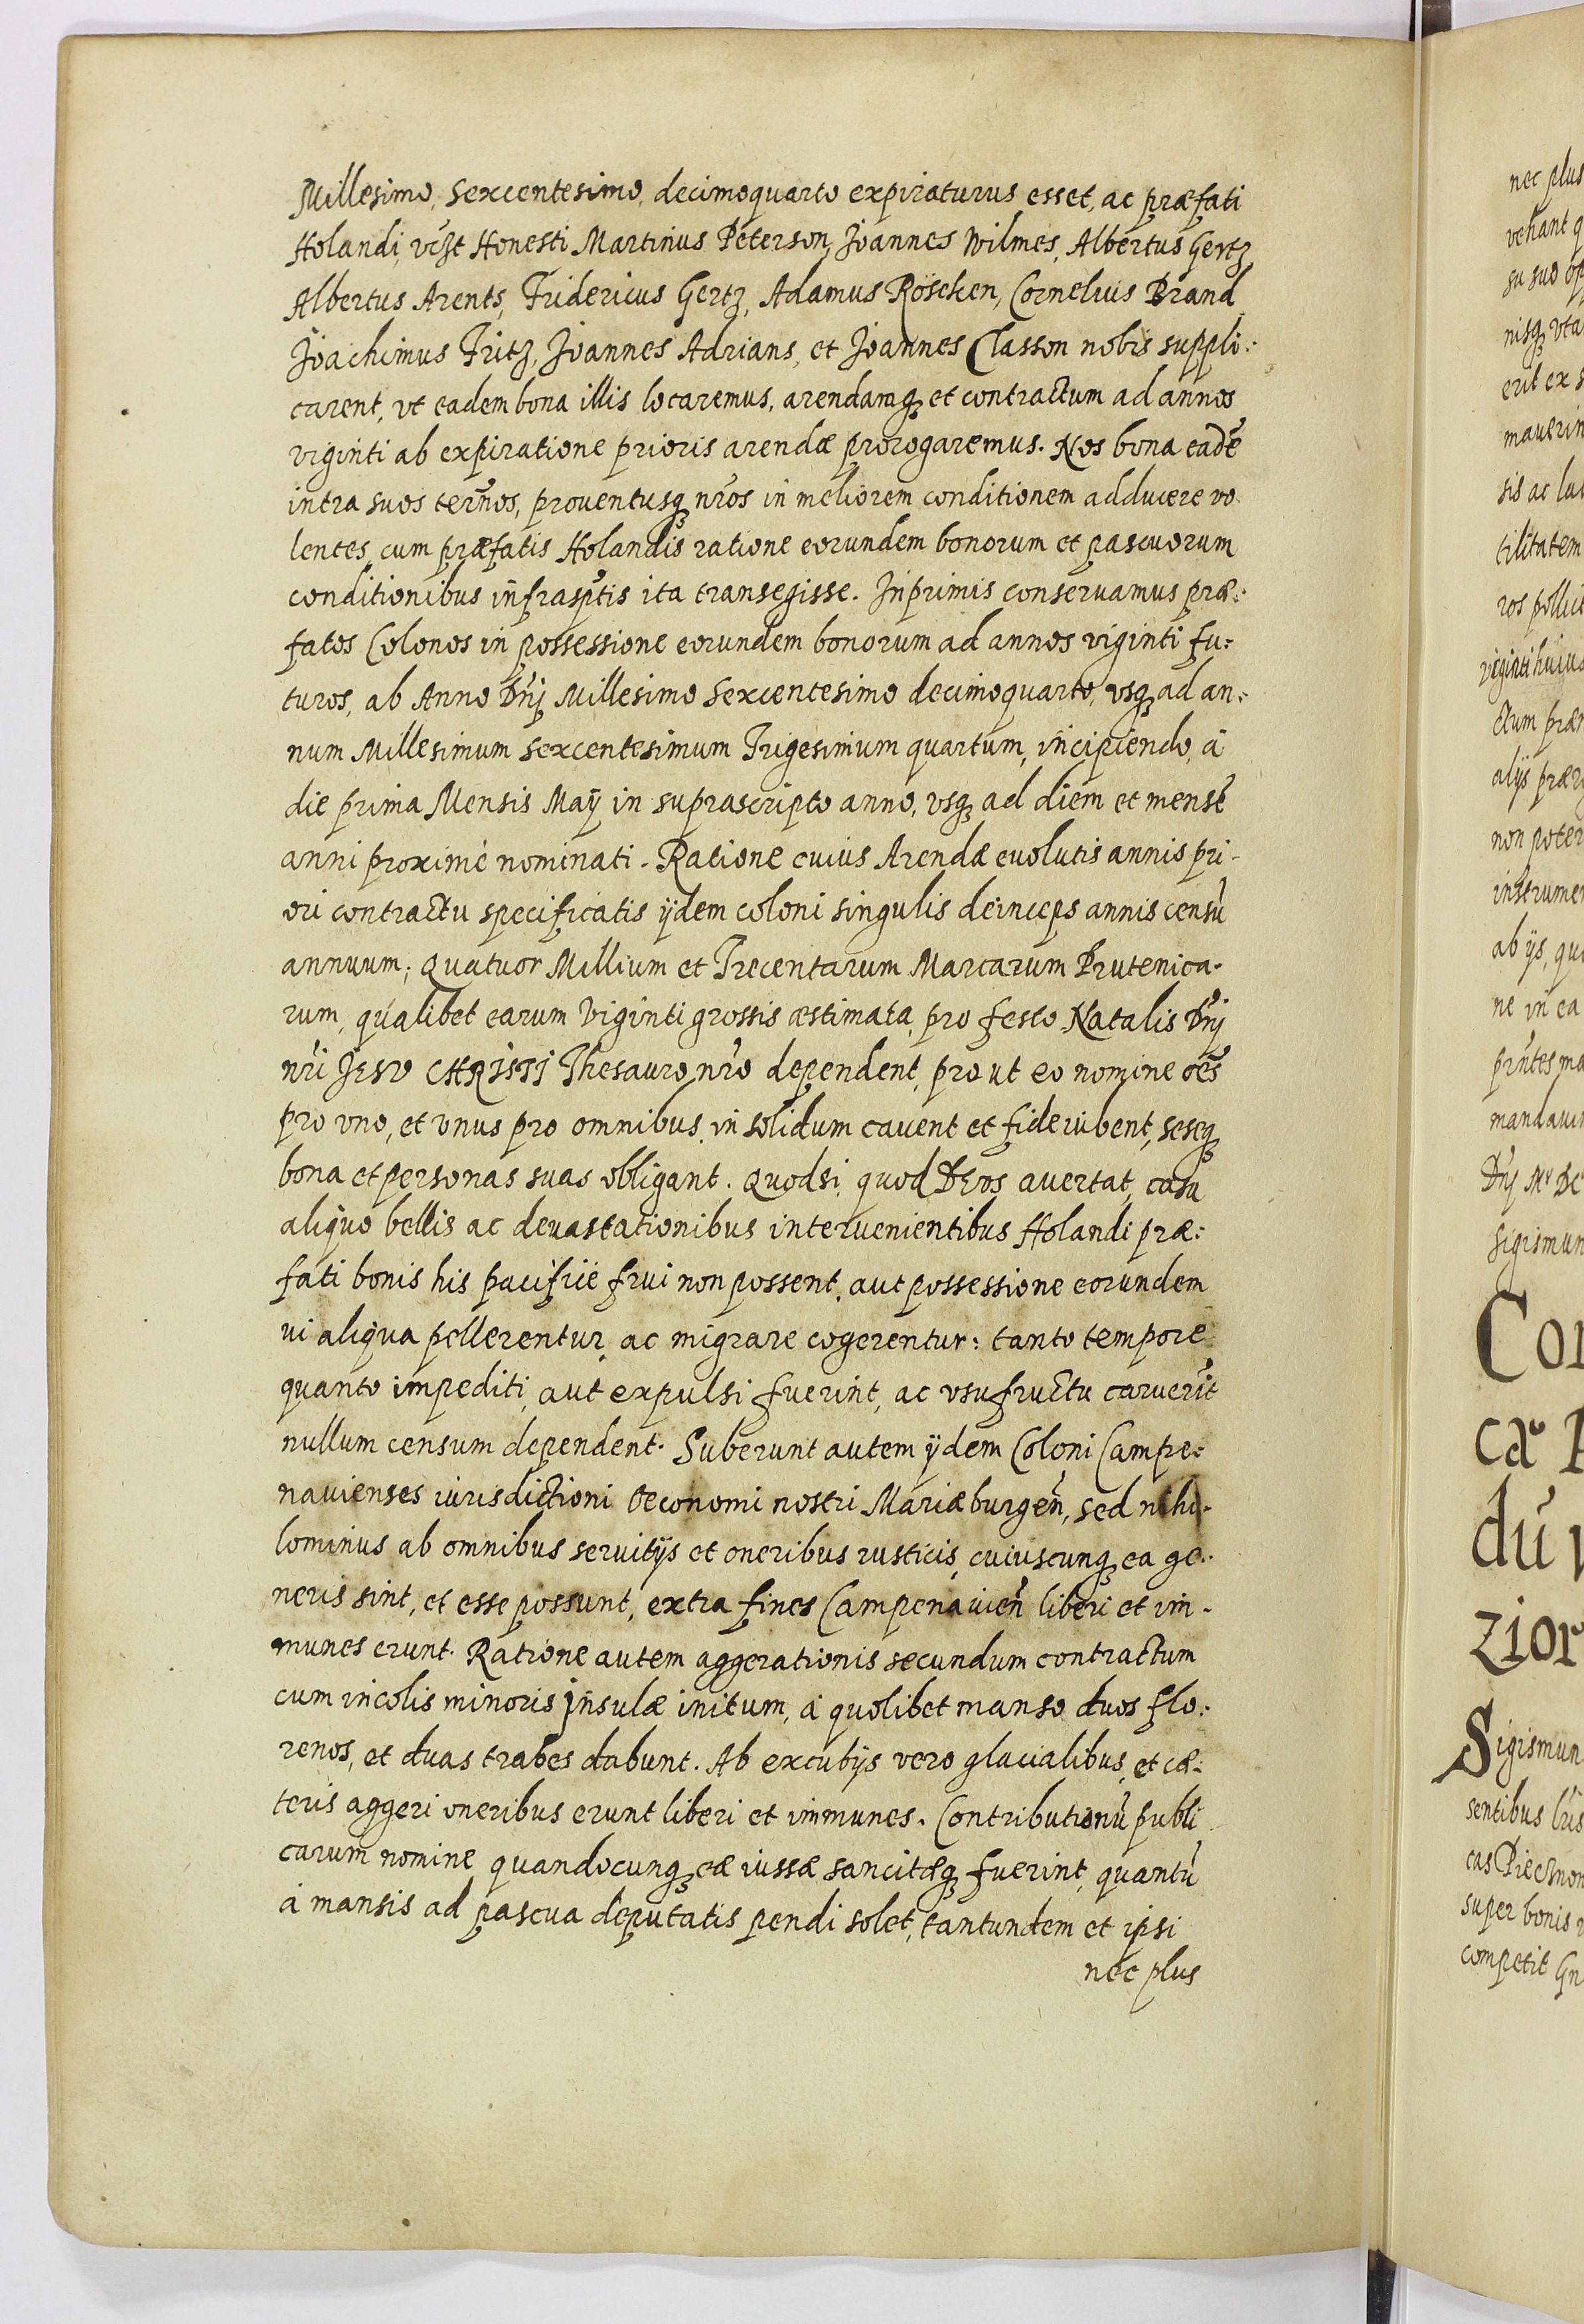 Millesimo, Sexcentesimo, decimoquarto expiraturus esset, ac præfati
Holandi, vczt Honesti Martinus Peterson, Joannes Wilmes, Albertus Gertz
Albertus Arents, Fridericus Gertz, Adamus Röseken, Cornelius Brand
Joachimus Fritz, Joannes Adrians, et Joannes Classon nobis suppli:
carent, vt eadem bona illis locaremus, arendamqꝫ et contractum ad annos
viginti ab expiratione prioris arendæ prorogaremus. Nos bona eadē
intra suos terños, prouentusqꝫ nr̃os in meliorem conditionem adducere vo-
lentes, cum præfatis Holandis ratione eorundem bonorum et pascuorum
conditionibus infrasp̃tis ita transegisse. Inprimis conseruamus præ:
fatos Colonos in possessione eorundem bonorum ad annos viginti fu:
turos, ab Anno Dñj Millesimo Sexcentesimo decimoquarto, vsqꝫ ad an:
num Millesimum sexcentesimum Trigesimum quartum, incipiendo, à
die prima Mensis Maÿ in suprascripto anno, vsqꝫ ad diem et mensē
anni proximè nominati. Ratione cuius Arendæ euolutis annis pri-
ori contractu specificatis ÿdem coloni singulis deinceps annis censū
annuum; Quatuor Millium et Trecentarum Marcarum Prutenica-
rum, qualibet earum Viginti grossis æstimata, pro festo Natalis Dñj
nr̃i JESV CHRISTJ Thesauro nr̃o dependent, prout eo nomine oēs
pro vno, et vnus pro omnibus in solidum cauent et fideiubent, seseqꝫ
bona et personas suas obligant. Quodsi, quod DEVS auertat, casu
aliquo bellis ac deuastationibus interuenientibus Holandi præ:
fati bonis his pacificè frui non possent, aut possessione eorundem
vi aliqua pellerentur, ac migrare cogerentur: tanto tempore
quanto impediti, aut expulsi fuerint, ac vsufructu caruerīt
nullum censum dependent. Suberunt autem ÿdem Coloni Campe:
nauienses iurisdictioni Oeconomi nostri Mariæburgeñ, sed nihi-
lominus ab omnibus seruitÿs et oneribus rusticis, cuiuscunqꝫ ea ge:
neris sint, et esse possunt, extra fines Campenauieñ liberi et im-
munes erunt. Ratione autem aggerationis secundum contractum
cum incolis minoris Insulæ initum, à quolibet manso duos flo:
renos, et duas trabes dabunt. Ab excubÿs vero glacialibus, et cæ:
teris aggeri oneribus erunt liberi et immunes. Contributionū publi
carum nomine quandocunqꝫ eæ iussæ sancitæqꝫ fuerint, quantū
à mansis ad pascua deputatis pendi solet, tantundem et ipsi
nec plus
nec plus
vehant q
su suo op
nisqꝫ vta
erit ex s
mauerin
sis ac lu
tilitatem
ros pollicit
viginti huius
ctum præ
alÿs præ
non poter
instrumen
ab ÿs, qu
ne in ea
pr̃ntes ma
mandaui
Sigismun
Con
ca P
dū
zior
Sigismun
sentibus lr̃is
super bonis
competit Gn